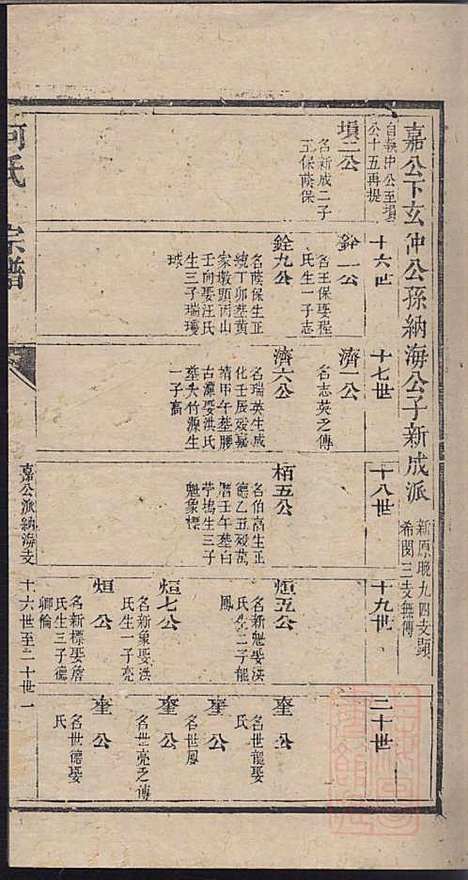 嘉公下玄仲公孫納海公子新成派
新原晚九四支顯
希閔三支無傳
自執中公至塤
公十五再提
塤二公
名新成二子
王保蔭保
十六世
銓一公
名王保娶程
氏生一子志
銓九公
名蔭保生正
統丁卯葬黃
家墩頭丙山
壬向娶汪氏
生三子瑞璦
球
十七世
濟一公
名志英之傳
濟六公
名瑞英生成
化壬辰歿嘉
靖甲午葬腰
古濂娶洪氏
葬大竹源生
一子高
十八世
栢五公
名伯高生正
德乙丑歿萬
曆壬午葬白
苧塢生三子
魁象標
十九世
烜五公
名新魁娶洪
氏生二子龍
鳳
烜七公
名新象娶洪
氏生一子亮
烜公
名新標娶詹
氏生三子德
卿倫
二十世
奎公
名世龍娶
氏
奎公
名世鳳
奎公
名世亮之傳
奎公
名世德娶
氏
何氏宗譜
嘉公派納海支
十六世至二十世一